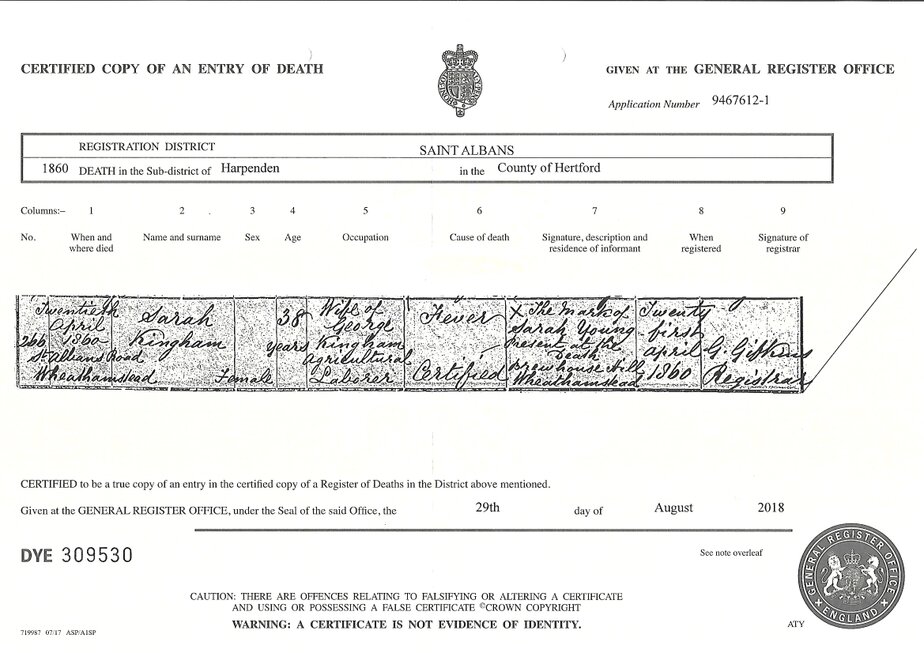 CERTIFIED COPY OF AN ENTRY OF DEATH
GIVEN AT THE GENERAL REGISTER OFFICE
Application Number 9467612-1
REGISTRATION DISTRICT SAINT ALBANS
1860 DEATH in the Sub-district of Harpenden in the County of Hertford
Columns:– 1 2 3 4 5 6 7 8 9
No. When and where died Name and surname Sex Age Occupation Cause of death Signature, description and residence of informant When registered Signature of registrar
266
Twentieth
April
1860
St Albans Road
Wheathamstead
Sarah
Kingham
Female
38
years
Wife of
George
Kingham
Agricultural
Laborer
Fever
Certified
X The Mark of
Sarah Young
Present at the
Death
Brewhouse Hill
Wheathamstead
Twenty
first
April
1860
G.
Registrar
CERTIFIED to be a true copy of an entry in the certified copy of a Register of Deaths in the District above mentioned.
Given at the GENERAL REGISTER OFFICE, under the Seal of the said Office, the 29th day of August 2018
DYE 309530
See note overleaf
CAUTION: THERE ARE OFFENCES RELATING TO FALSIFYING OR ALTERING A CERTIFICATE
AND USING OR POSSESSING A FALSE CERTIFICATE ©CROWN COPYRIGHT
WARNING: A CERTIFICATE IS NOT EVIDENCE OF IDENTITY.
719987 07/17 ASP/A1SP
ATY
GENERAL REGISTER OFFICE
ENGLAND